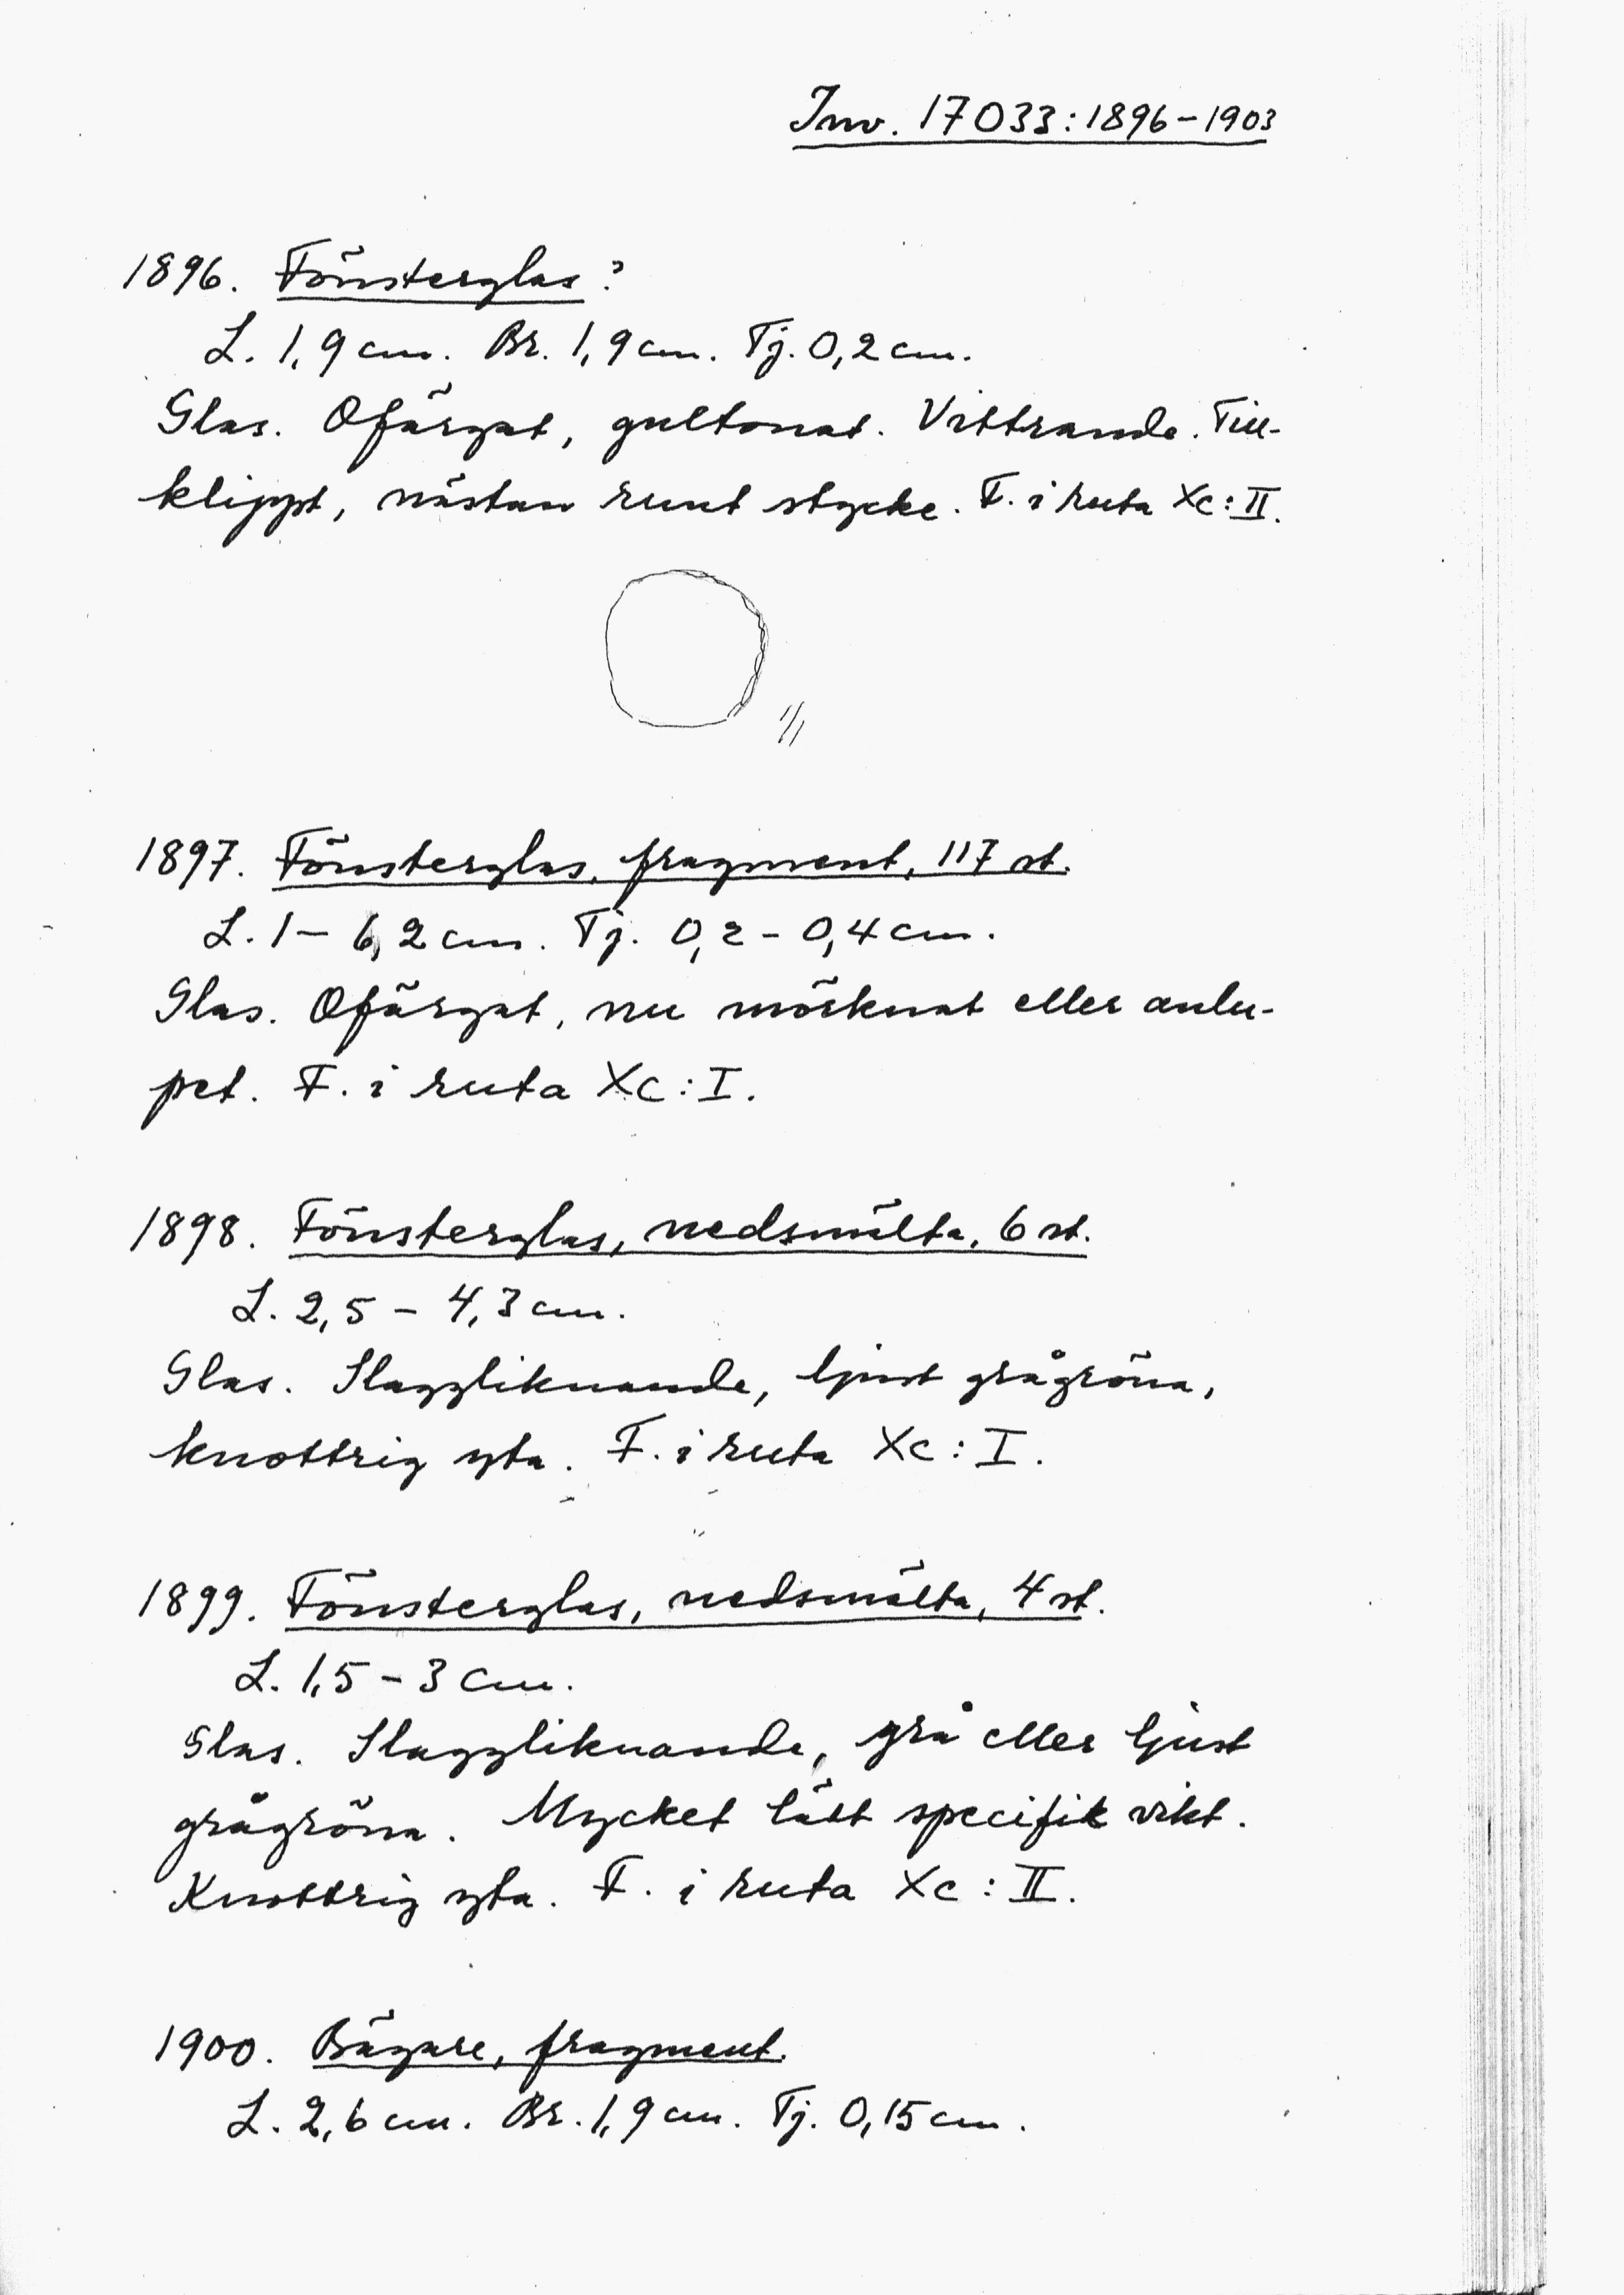 Inv. 17033:1896-1903
1896. Fönsterglas?
L. 1,9 cm. Br. 1,9 cm. Tj. 0,2 cm.
Glas. Ofärgat, gultonat. Vittrande. Till-
klippt, nästan runt stycke. F. i ruta Xc:II.
1/1
1897. Fönsterglas, fragment, 117 st.
L. 1- 6,2 cm. Tj. 0,2 - 0,4 cm.
Glas. Ofärgat, nu mörknat eller anlu-
pet. F. i ruta Xc:I.
1898. Fönsterglas, nedsmälta, 6 st.
L. 2,5 - 4,3 cm.
Glas. Slaggliknande, ljust grågröna,
knottrig yta. F. i ruta Xc: I.
1899. Fönsterglas, nedsmälta, 4 st.
L. 1,5 - 3 cm.
Glas. Slaggliknande, grå eller ljust
grågröna. Mycket lätt specifik vikt.
Knottrig yta. F. i ruta Xc: II.
1900. Bägare, fragment.
L. 2,6 cm. Br. 1,9 cm. Tj. 0,15 cm.